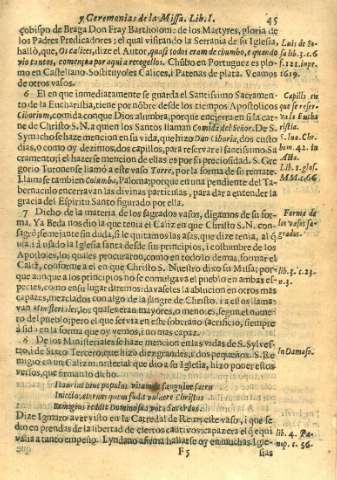 y Ceremonias de la Missa. Lib. I. 45
çobispo de Braga Don Fray Bartholome de los Martyres, gloria de
los Padres Predicadores: el qual visitando la Serrania de su Iglesia,
halló, que, Os calices, dize el Autor, quasi todos eram de chumbo, e quando
vio tantos, començou por aqui a recogellos. Chũbo en Portugues es plomo
en Castellano. Sostituyoles Calices, i Patenas de plata. Veamos
de otros vasos.
6 El en que inmediatamente se guarda el Santissimo Sacramento
de la Eucharistia, tiene por nõbre desde los tiempos Apostolicos
Ciborium, comida con que Dios alumbra, porque encierra en si la carne
de Christo S. N. a quien los Santos llaman Comida del Señor. De S.
Symaco se haze mencion en su vida, que hizo Dan Ciboria, dos custodias,
o como oy dezimos, dos capillos, para reservar el santissimo Sacramento;
i el hazerse mencion de ellas es por su preciosidad. S. Gregorio
Turonense llamó a este vaso Torre, por la forma de su remate.
Llama se tambien Columba, Paloma; porque en una pendiente del Tabernaculo
encerravan las divinas particulas, para dar a entender la
gracia del Espiritu Santo figurado por ella.
7 Dicho de la materia de los sagrados vasos, digamos de su forma.
Ya Beda nos dio la que tenia el Caliz en que Christo S. N. consagró
se mejante sin duda, si le quitamos las asas, que dize tenia, al q̃
usa, i à usado la Iglesia santa desde sus principios,
los Apostoles, los quales procuraron, como en todo lo demas, formar el
Caliz, conforme a el en que Christo S. Nuestro dixo su Missa; porque
aunque a los principios no se comulgava el pueblo en ambas especies,
como en su lugar diremos: davaseles la ablucion en otros mas
capazes, mezclados con algo de la sangre de Christo. i a ellos llamavan
Ministeriales, los quales eran mayores, o menores, segun el numero
del pueblo; pero el que servia en este soberano sacrificio, siempre
à sido en la forma que oy vemos, i no mas capaz.
8 De los Ministeriales se haze mencion en las vidas de S. Sylvestro,
i de Sixto Tercero, que hizo diez grandes, i dos pequeños. S. Remigio
en un Caliz ministerial que dio a su Iglesia, hizo poner estos
versos, que tomanlo dicho.
Hauriat hinc populus vitam de sanguine sacro
Iniecto, aeternus quem fudit vulnere Christus
Remigius reddit Domino sua vota Sacerdos.
Dize Igmaro aver visto en la Catedral de Rems este vaso, i que se
dio en prendas de la libertad de ciertos cautivos; capaz era el q̃ equivalia
a tanto empeño. Lyndano afirma hallarse oy en muchas Igle-
F 5 sias
Luis de Sosa
lib. 3. c. 6
Veamos 1619.
Capillo en
que se reserva
la Eucharistia
Forma de
los vasos sagrados.
In Damaso.